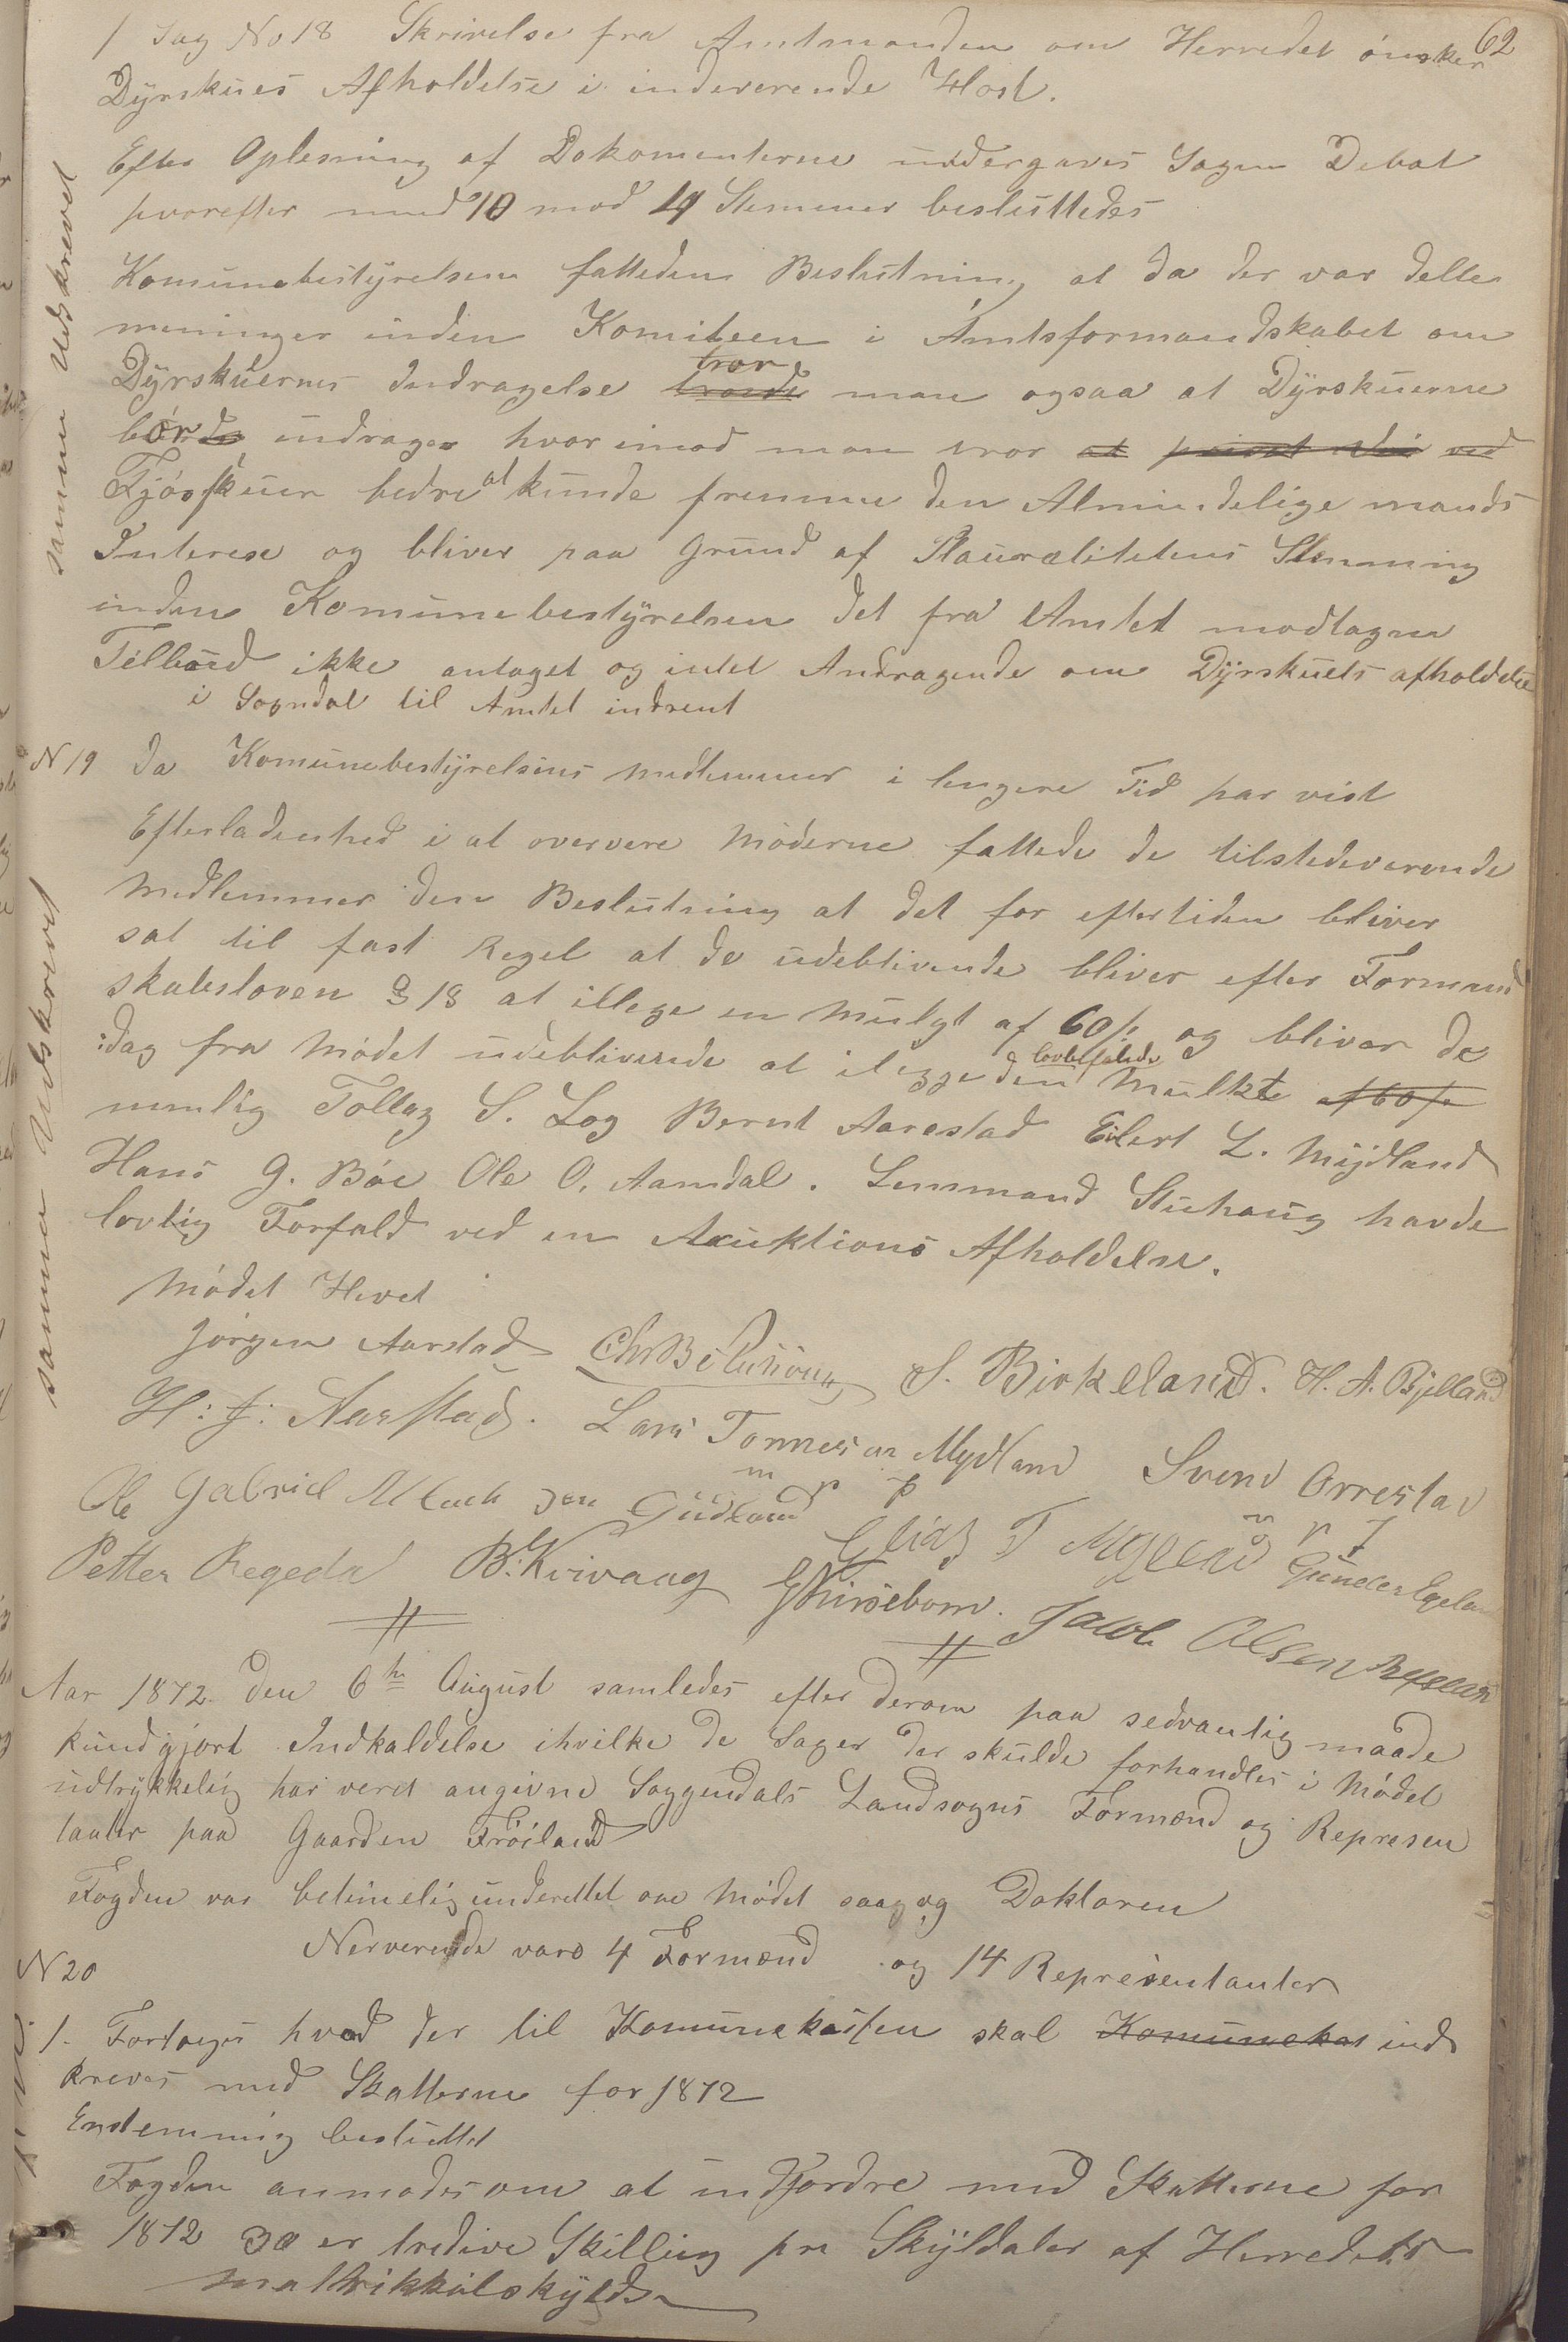 62
/ Sag No 18 Skrivelse fra Amtmanden om Herredet ønsker
Dyrskues Afholdelse i indeverende Høst.
Efter Oplesning af Dokomenterne undergaves Sagen Debat
hvorefter med 10 mod 4 Stemmer besluttedes
Komunebestyrelsen fatteden Beslutning, at da der var delte
meninger inden Komiteen i Amtsformandskabet om
Dyrskuernes Indragelse tror man ogsaa at Dyrskuerne
bør indrages hvorimod man tror at ved
Fjøsskuer bedre at kunde fremme den Almindelige mands
Interese og bliver paa Grund af Plauralitetens Stemning
inden Komunebestyrelsen det fra Amtet modtagne
Tilbud ikke antaget og intet Andragende om Dyrskuets afholdelse
i Sogndal til Amtet indsent
samme Udskrevet
N 19 Da Komunebestyrelsens medlemmer i lengere Tid har vist
Efterladenhed i at oververe Møderne fattede de tilstedeverende
Medlemmer den Beslutning at det for eftertiden bliver
sat til fast Regel at de udeblivende bliver efter Formand
skabsloven § 18 at illege en Mulgt af 60 / og bliver de
idag fra Mødet udeblivende at ilegge den lovbefalede Mulkt af 60 /
nemlig Tollag S. Log Bernt Aarestad Eilert L. Mydland
Hans G. Bøe Ole O. Aamdal. Lensmand Stuhaug havde
lovlig Forfald ved en Auktions Afholdelse.
samme Udskrevet
Mødet Hevet
Jørgen Aarstad S. Birkeland. H. A. Bjelland
H: J: Aarstad. Lars Tønnesen Mydland Svend Orrestad
Ole Gabriel Gudland m p p
Elias T m p f Gunder Egeland
Petter Regedal B. Kvivaag Jacob Olsen
Aar 1872 den 6te August samledes efter derom paa sedvanlig maade
kundgjort Indkaldelse ihvilke de Sager der skulde forhandles i Mødet
udtrykkelig har veret angivne Soggendals Landsogns Formænd og Represen
tanter paa Gaarden Frøiland
Fogden var betimelig underettet om Mødet saa og Doktoren
Nerverende vare 4 Formænd og 14 Representanter
N 20
1. Fortoges hvad der til Komunekassen skal Komunekas ind
kreves med Skatterne for 1872
Enstemmig besluttet
Fogden anmodes om at indfordre med Skatterne for
1872 30 er tredive Skilling pr Skyldaler af Herredets
mattrikkulskyld